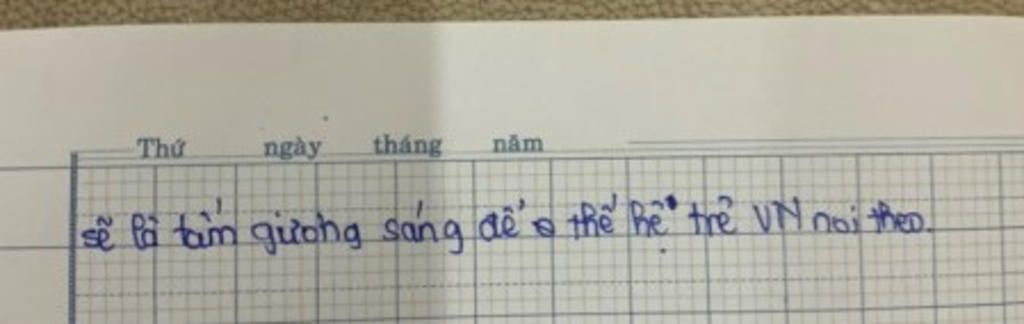 Thứ ngày tháng năm
sẽ là tấm gương sáng để thế hệ trẻ VN noi theo.